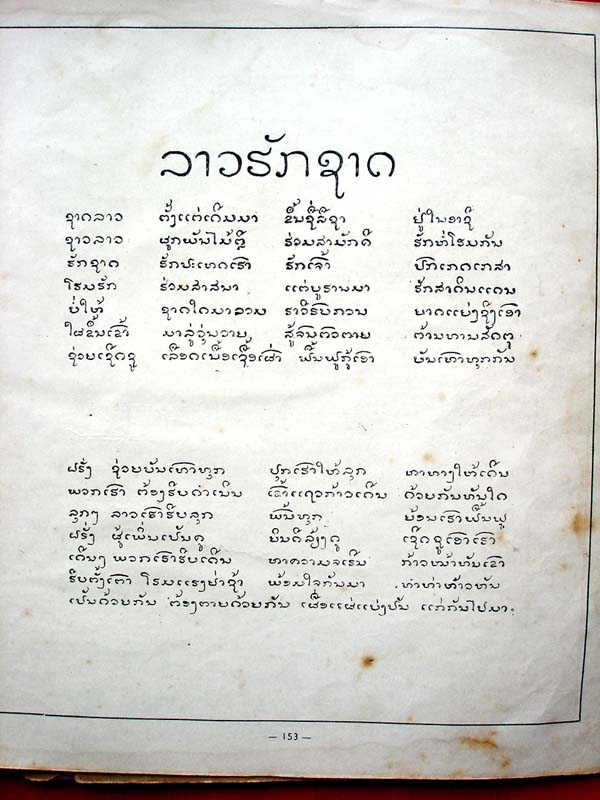 ລາວຮັກຊາດ
ຊາດລາວ ຕັ້ງແຕ່ເດີມມາ ຂຶ້ນຊື່ລືຊາ ຢູ່ໃນອາຊີ
ຊາວລາວ ຜູກພັນໄມ້ຕຼີ ຮ່ວມສາມັກຄີ ຮັກຫໍ່ໂຮມກັນ
ຮັກຊາດ ຮັກປະເທດເຮົາ ຮັກເຈົ້າ ປົກເກດເກສາ
ໂຮມຮັກ ຮ່ວມສາສນາ ແຕ່ບູຮານມາ ຮັກສາດິນແດນ
ບໍ່ໃຫ້ ຊາດໃດມາລວນ ຮາວີຮົບກວນ ຍາດແບ່ງຊີງເອົາ
ໃຜຂືນເຂົ້າ ມາສູ່ວຸ່ນວາຍ ສູ້ຈົນຕົວຕາຍ ຕ້ານທານສັດຕຼູ
ຊ່ວຍເຊີດຊູ ເລືອດເນື້ອເຊື້ອເຜົ່າ ຟື້ນຟູກູ້ເອົາ ບັນເທົາທຸກກັນ
ຝຣັ່ງ ຊ່ວຍບັນເທົາທຸກ ປຸກເຮົາໃຫ້ລຸກ ຫາທາງໃຫ້ເດີນ
ພວກເຮົາ ຕ້ອງຮີບດຳເນີນ ເຂົ້າແຖວກ້າວເດີນ ດ້ວຍກັນທັນໃດ
ລຸກໆ ລາວເຮົາຮີບລຸກ ພົ້ນທຸກ ຍ້ອນເຮົາຟື້ນຟູ
ຝຣັ່ງ ຜູ້ເພິ່ນເປັນຄູ ຍິນດີລ້ຽງດູ ເຊີດຊູເອົາເຮົາ
ເດີນໆ ພວກເຮົາຮີບເດີນ ຫາຄວາມຈເຣີນ ກ້າວໜ້າທັນເຂົາ
ຮີບຕັ້ງເຕົາ ໂຮມແຮງຢ່າຊ້າ ພ້ອມໃຈກັນມາ ທ່າທ່າຫ້າວຫັນ
ເປັນດ້ວຍກັນ ຕ້ອງຕາຍດ້ວຍກັນ ເຜື່ອແຜ່ແບ່ງປັນ ແກ່ກັນໄປມາ.
— 153 —